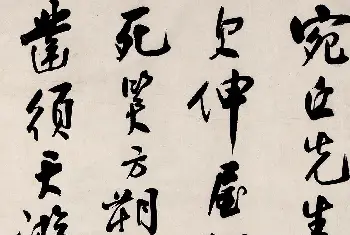 宛丘先生
欠伸屋
死笑方朔
鑿須天游